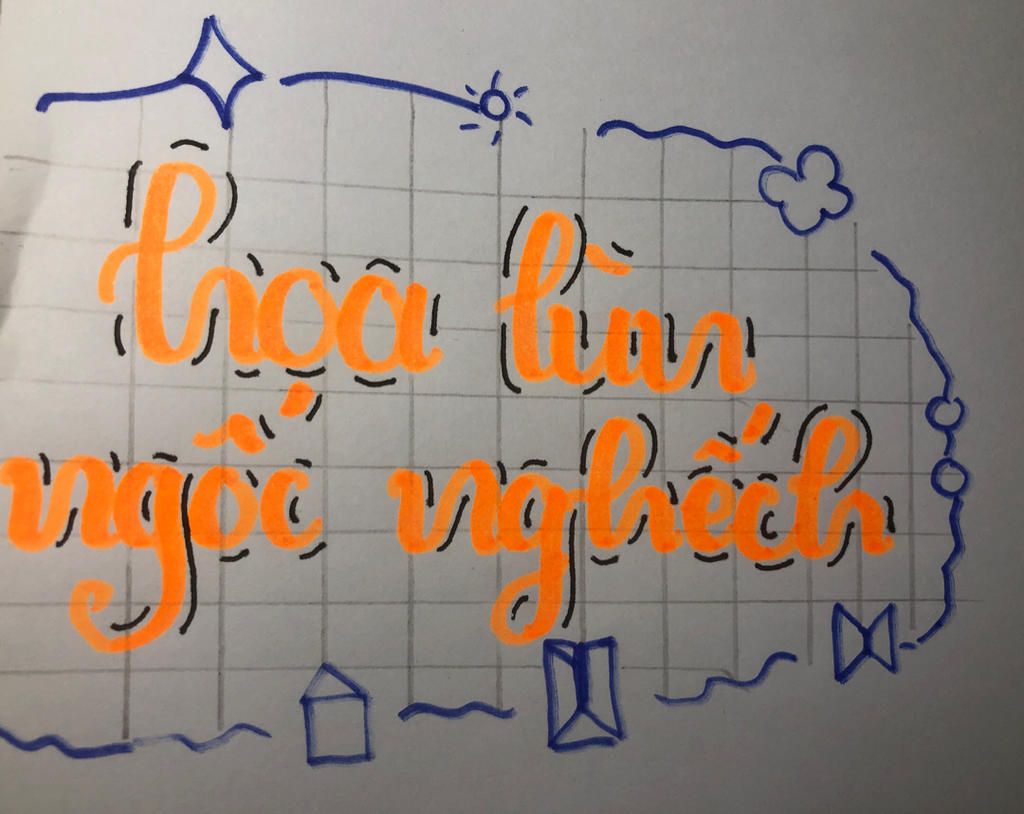 hoa lùn
ngốc nghếch